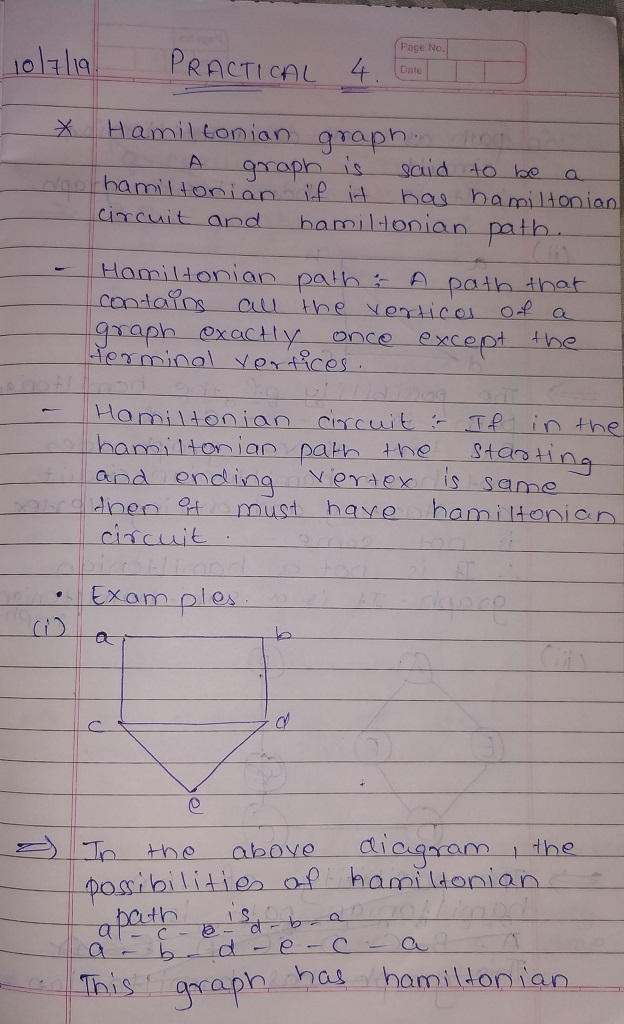 Page No.
Date
10/7/19
PRACTICAL 4.
* Hamiltonian graph.
A graph is said to be a
hamiltonian if it has hamiltonian
circuit and hamiltonian path.
- Hamiltonian path :- A path that
contains all the vertices of a
graph exactly once except the
terminal vertices.
- Hamiltonian circuit :- If in the
hamiltonian path the starting
and ending vertex is same
then it must have hamiltonian
circuit.
• Examples.
(i)
a b
c d
e
⇒ In the above diagram, the
possibilities of hamiltonian
path is
a - c - e - d - b - a
a - b - d - e - c - a
This graph has hamiltonian